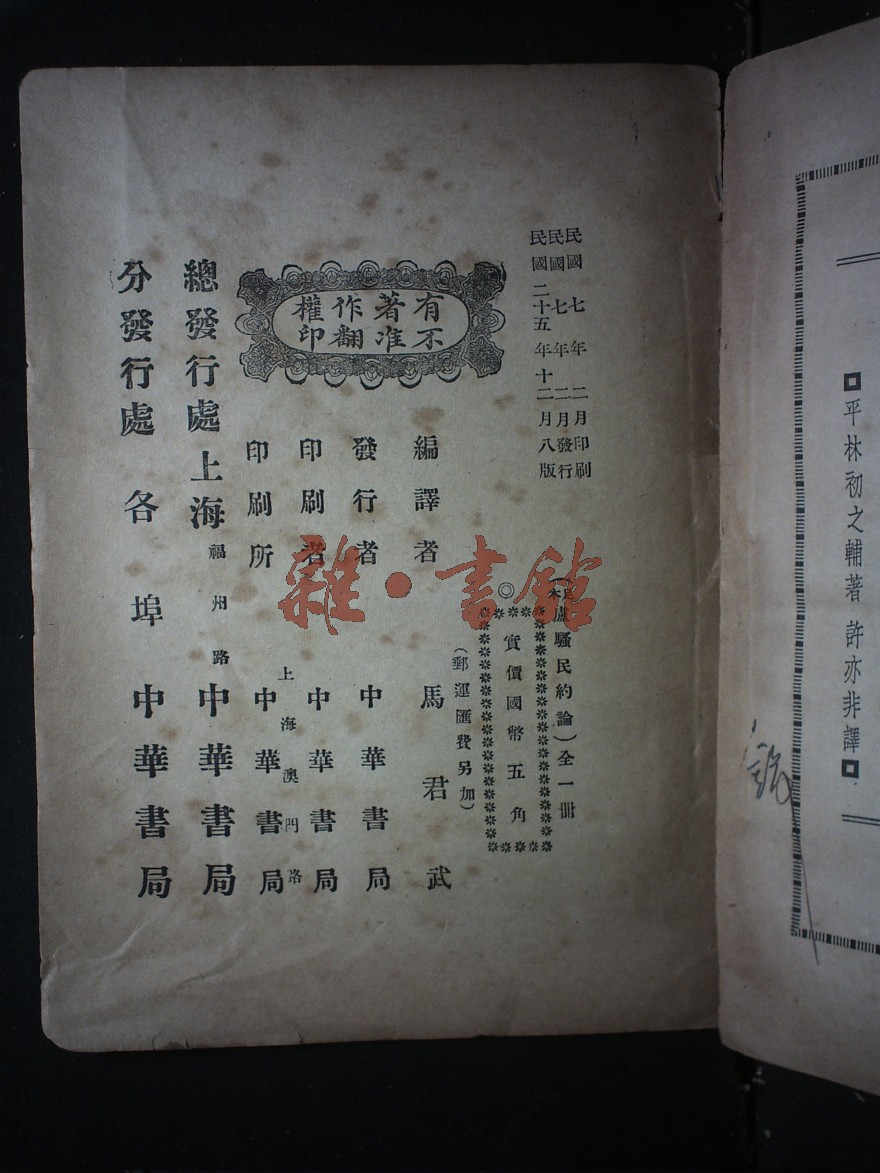 民國七年二月印刷
民國七年二月發行
民國二十五年十二月八版
盧騷民約論)全一冊
◎
實價國幣五角
(郵運匯費另加)
有著作權
不准翻印
編譯者 馬君武
發行者 中華書局
印刷者 中華書局
上海澳門路
印刷所 中華書局
總發行處 上海福州路 中華書局
分發行處 各埠 中華書局
平林初之輔著 許亦非譯
雜·書館